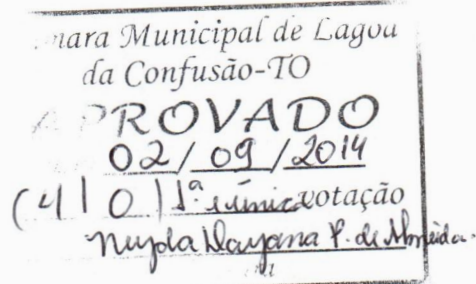 mara Municipal de Lagoa
da Confusão-TO
APROVADO
02/09/2014
(4 | 0) 1ª e única votação
Dayana P. de Almeida